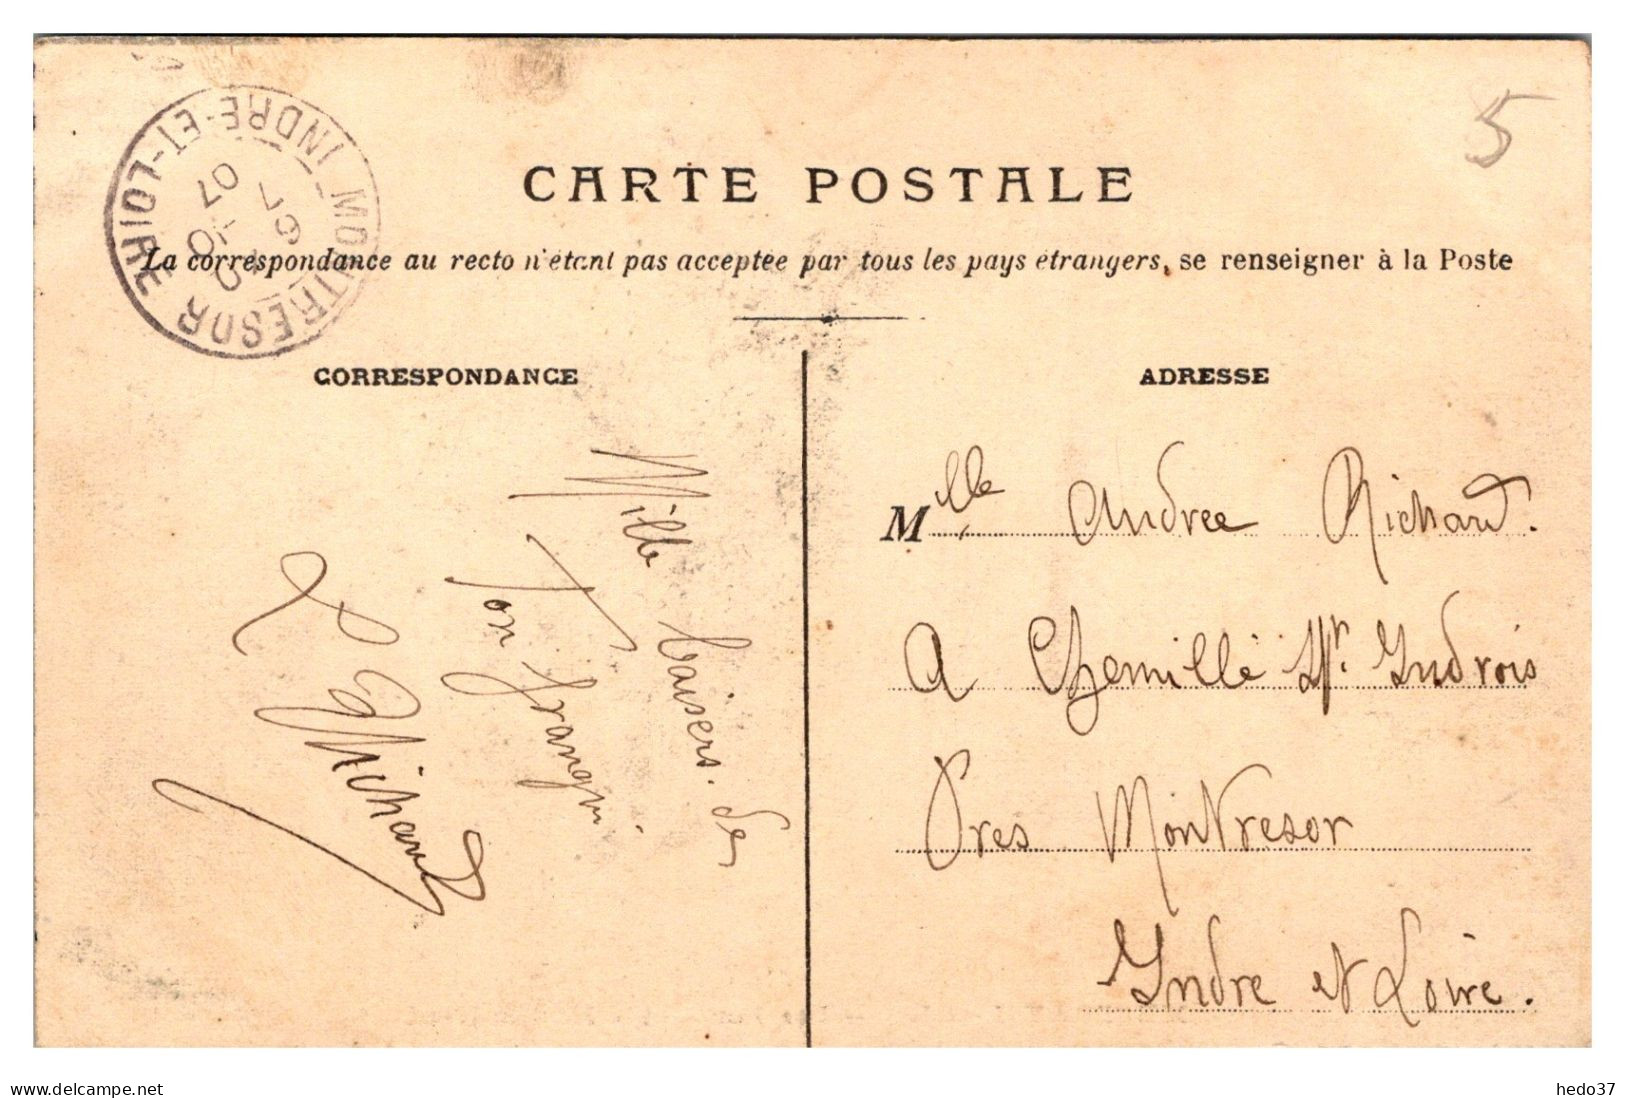 MONTRESOR INDRE-ET-LOIRE
07
5
CARTE POSTALE
La correspondance au recto n'étant pas acceptée par tous les pays étrangers, se renseigner à la Poste
CORRESPONDANCE
Mille baisers. de
Ton
ADRESSE
Mlle Andree Richard.
A Chemillé Sr. Indrois
Pres Montresor
Indre et Loire.
www.delcampe.net
hedo37